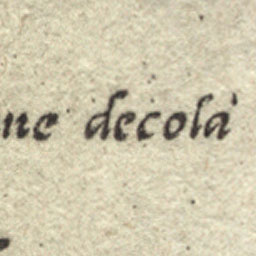 ne decolà